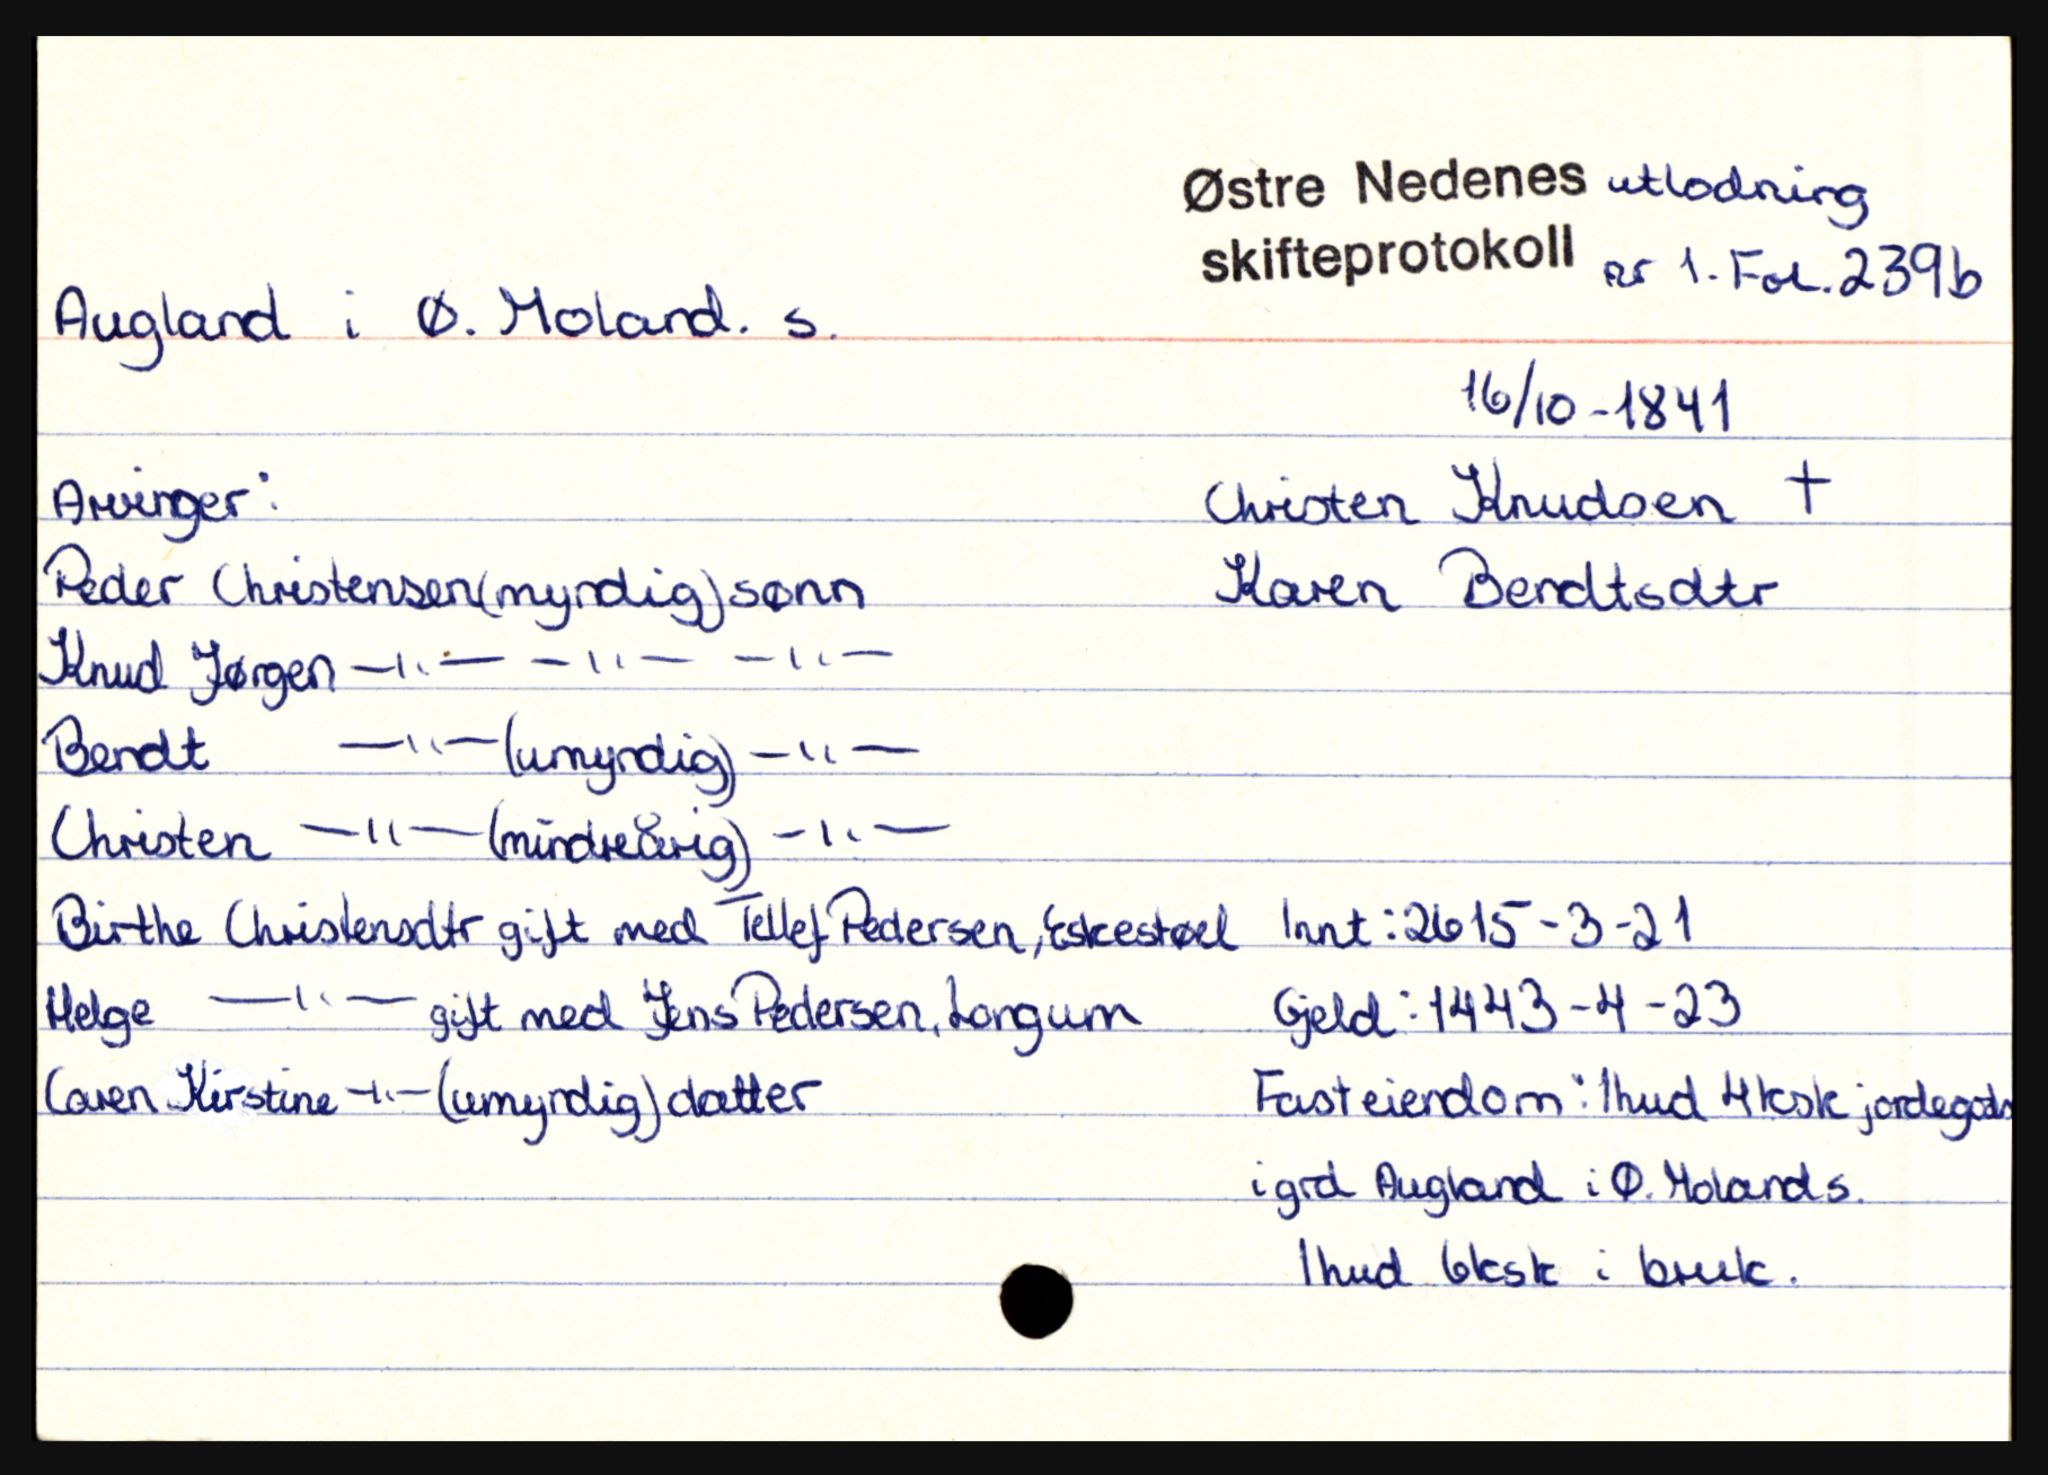 Østre Nedenes utlodning
skifteprotokoll nr 1. Fol. 239b
Augland i Ø. Moland. s.
16/10-1841
Arvinger: Christen Knudsen †
Peder Christensen (myndig) sønn Karen Bendtsdtr
Knud Jørgen —"— —"— —"—
Bendt —"— (umyndig) —"—
Christen —"— (mindreårig) —"—
Birthe Christensdtr gift med Tellef Pedersen, Eskestøel Innt: 2615-3-21
Helge —"— gift med Jens Pedersen, Longum Gjeld: 1443-4-23
Caren Kirstine —"— (umyndig) datter Fast eiendom: 1 hud 4 ksk jordegods
i grd Augland i Ø. Moland s.
1 hud 6 ksk i bruk.